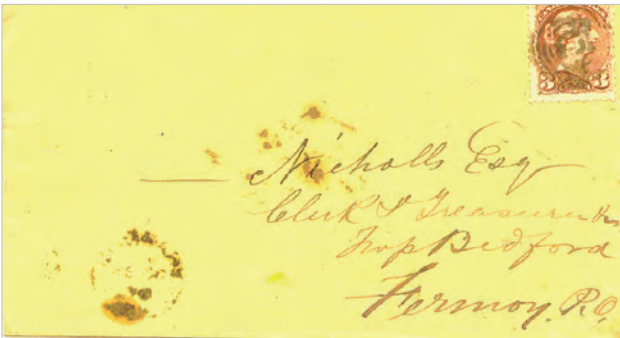 3 3
Nicholls Esq
Clerk & Treasurer &c
Twp Bedford
Fermoy. P.O.